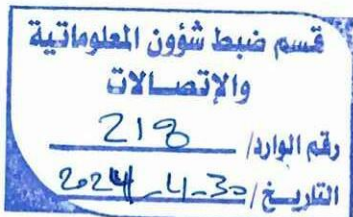 قسم ضبط شؤون المعلوماتية
والإتصالات
رقم الوارد/ 218
التاريخ/ 2024-4-30